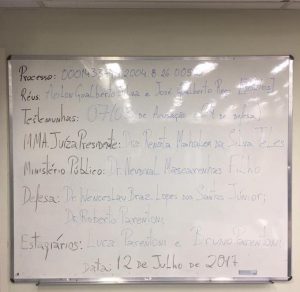 Processo: 2004.8.26.005
Réus: Goalberto Silva e José Goalberto
Testemunhas: 07/0 de Acusação defesa)
MMª Juíza Presidente: Dra Renata Mahalem da Silva Teles
Ministério Público: Dr. Neudival Mascarenhas Filho
Defesa: Dr. Wenceslau Braz Lopes dos Santos Júnior;
Dr. Roberto Parentoni;
Estagiários: Luca Parentoni e Bruno Parentoni
Data: 12 de Julho de 2017